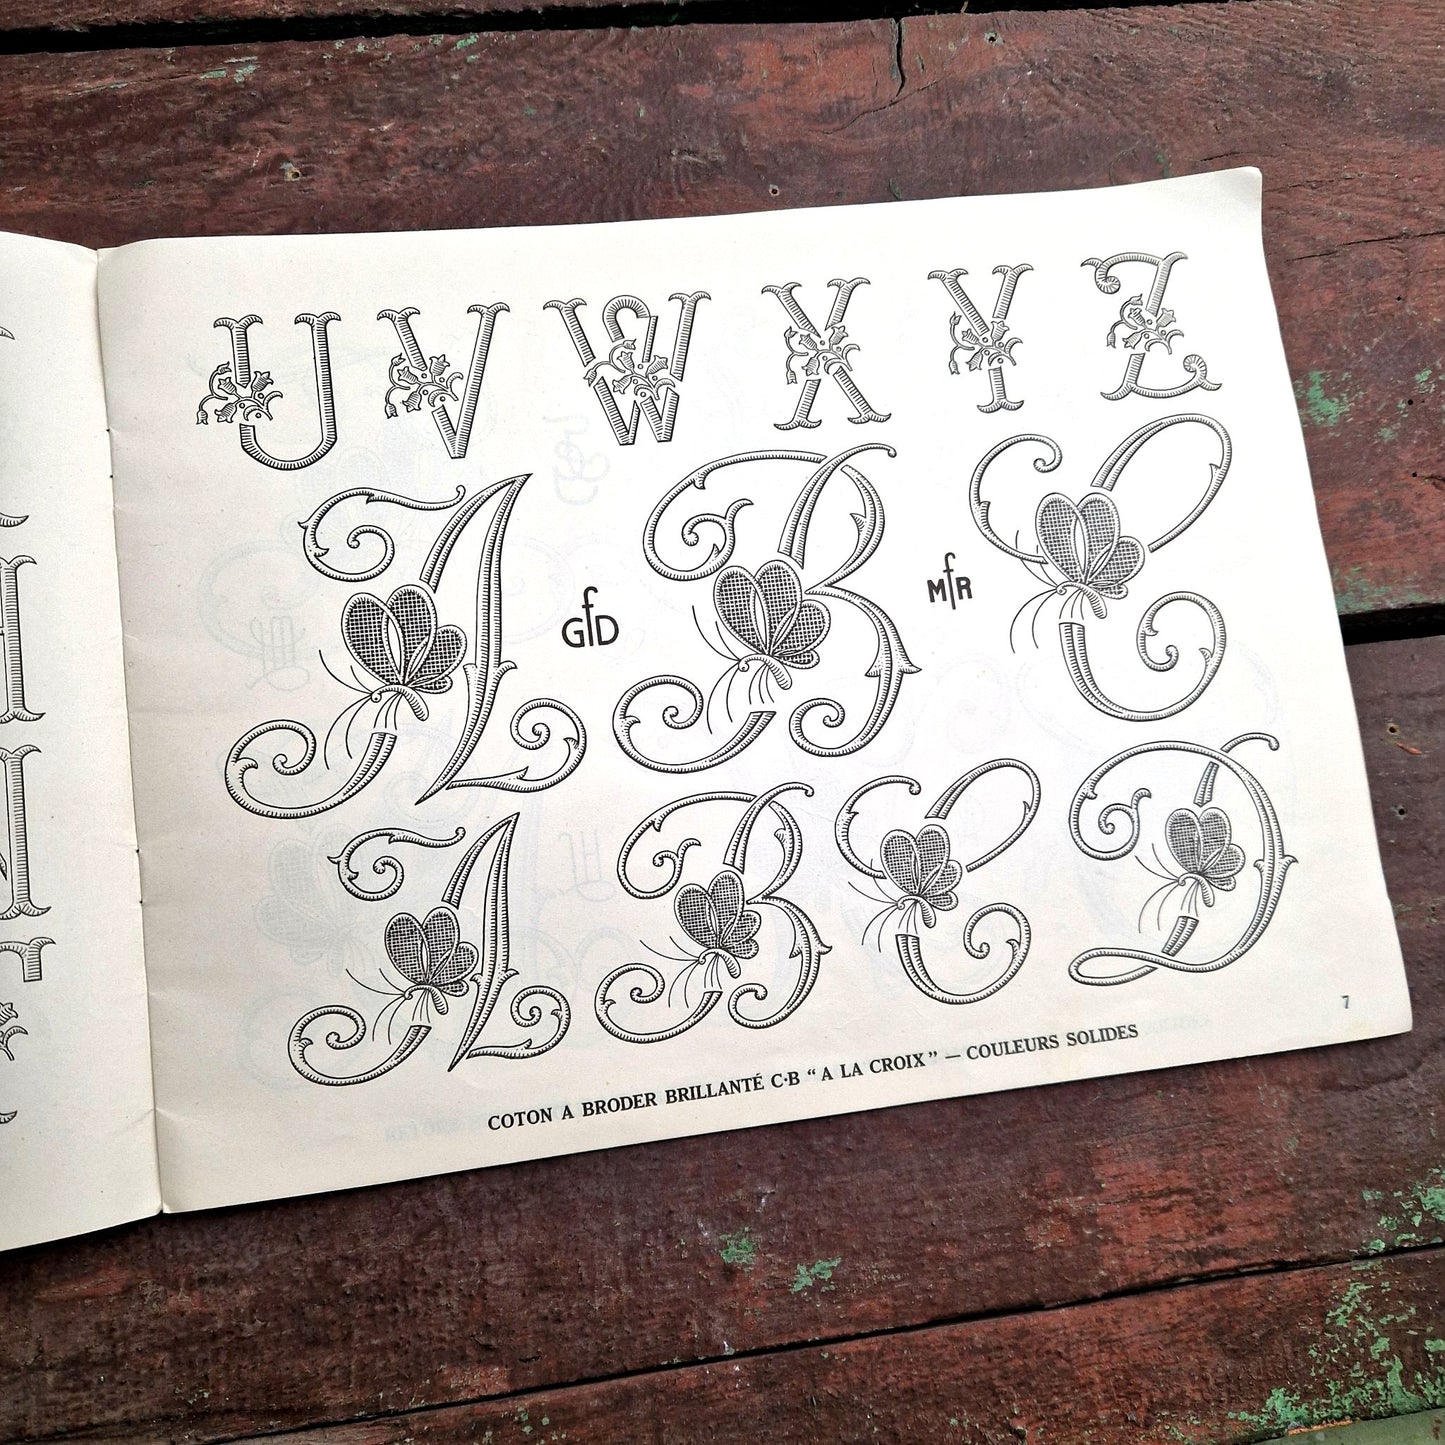 U V W X Y Z
A B C
GfD
MfR
A B C D
7
COTON A BRODER BRILLANTÉ C·B “ A LA CROIX ” — COULEURS SOLIDES